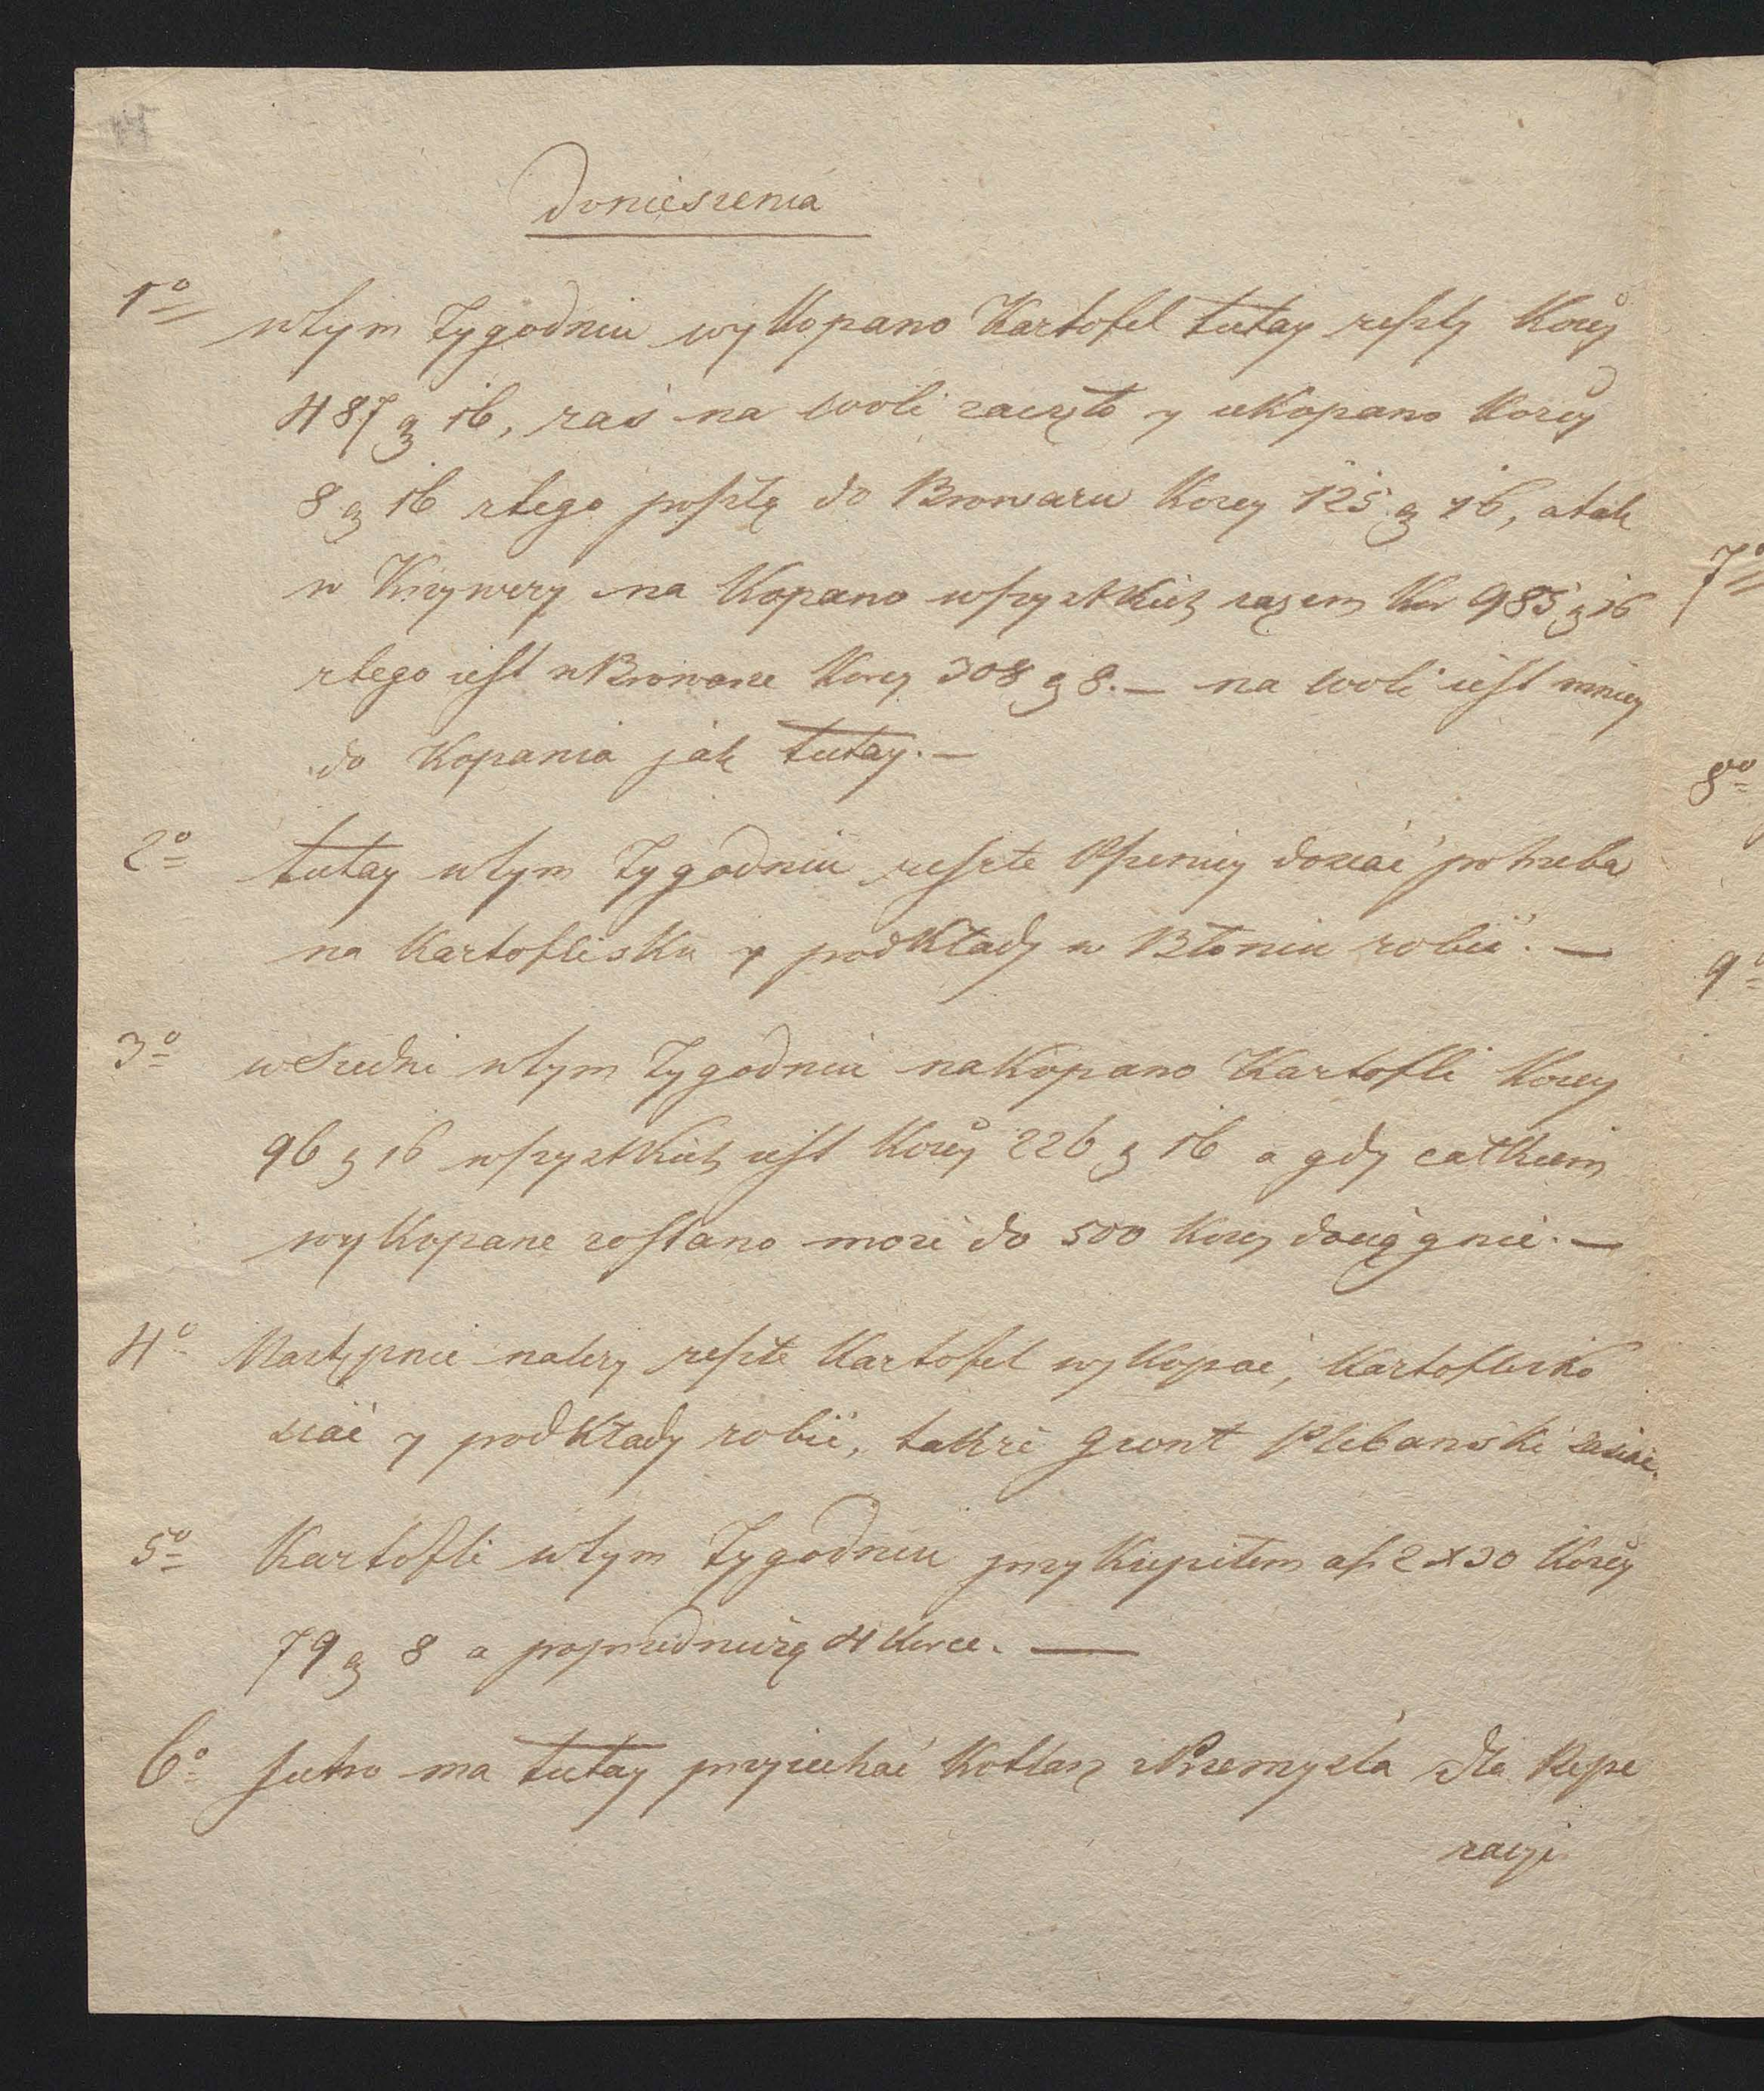 Doniesienia
1º wtym Tygodniu wykopano Kartofel tutay reszty Korcy
487 g 16, zaś na woli zaczęto y ukopano Korcy
8 g 16 ztego poszłą do Browaru Korcy 125 g 16, a tak
w Krzywczy na Kopano wszystkich razem Kor 985 g 16
ztego iest w Browarze Korcy 308 g 8. — na woli iest mniey
do Kopania jak tutay. —
2º tutay wtym Tygodniu reszte Pszenicy dosiać potrzeba
na Kartoflisku y podkłady w Błoniu robić. —
3º w Średni wtym Tygodniu nakopano Kartofli Korcy
96 g 16 wszystkich iest Korcy 226 g 16 a gdy całkiem
wykopane zostano może do 500 Korcy dociągnie. —
4º Następnie należy reszte Kartofel wykopać, Kartoflisko
siać y podkłady robić, także gront Plebanski zasiać.
5º Kartofli wtym Tygodniu przykupiłem a f. 2 x 30 Korcy
79 g 8 a poprzedniczą 4 Korce. —
6º Jutro ma tutay przyiechać Kotlarz z Przemyśla dla Repe
racyi
7º
8º
9º